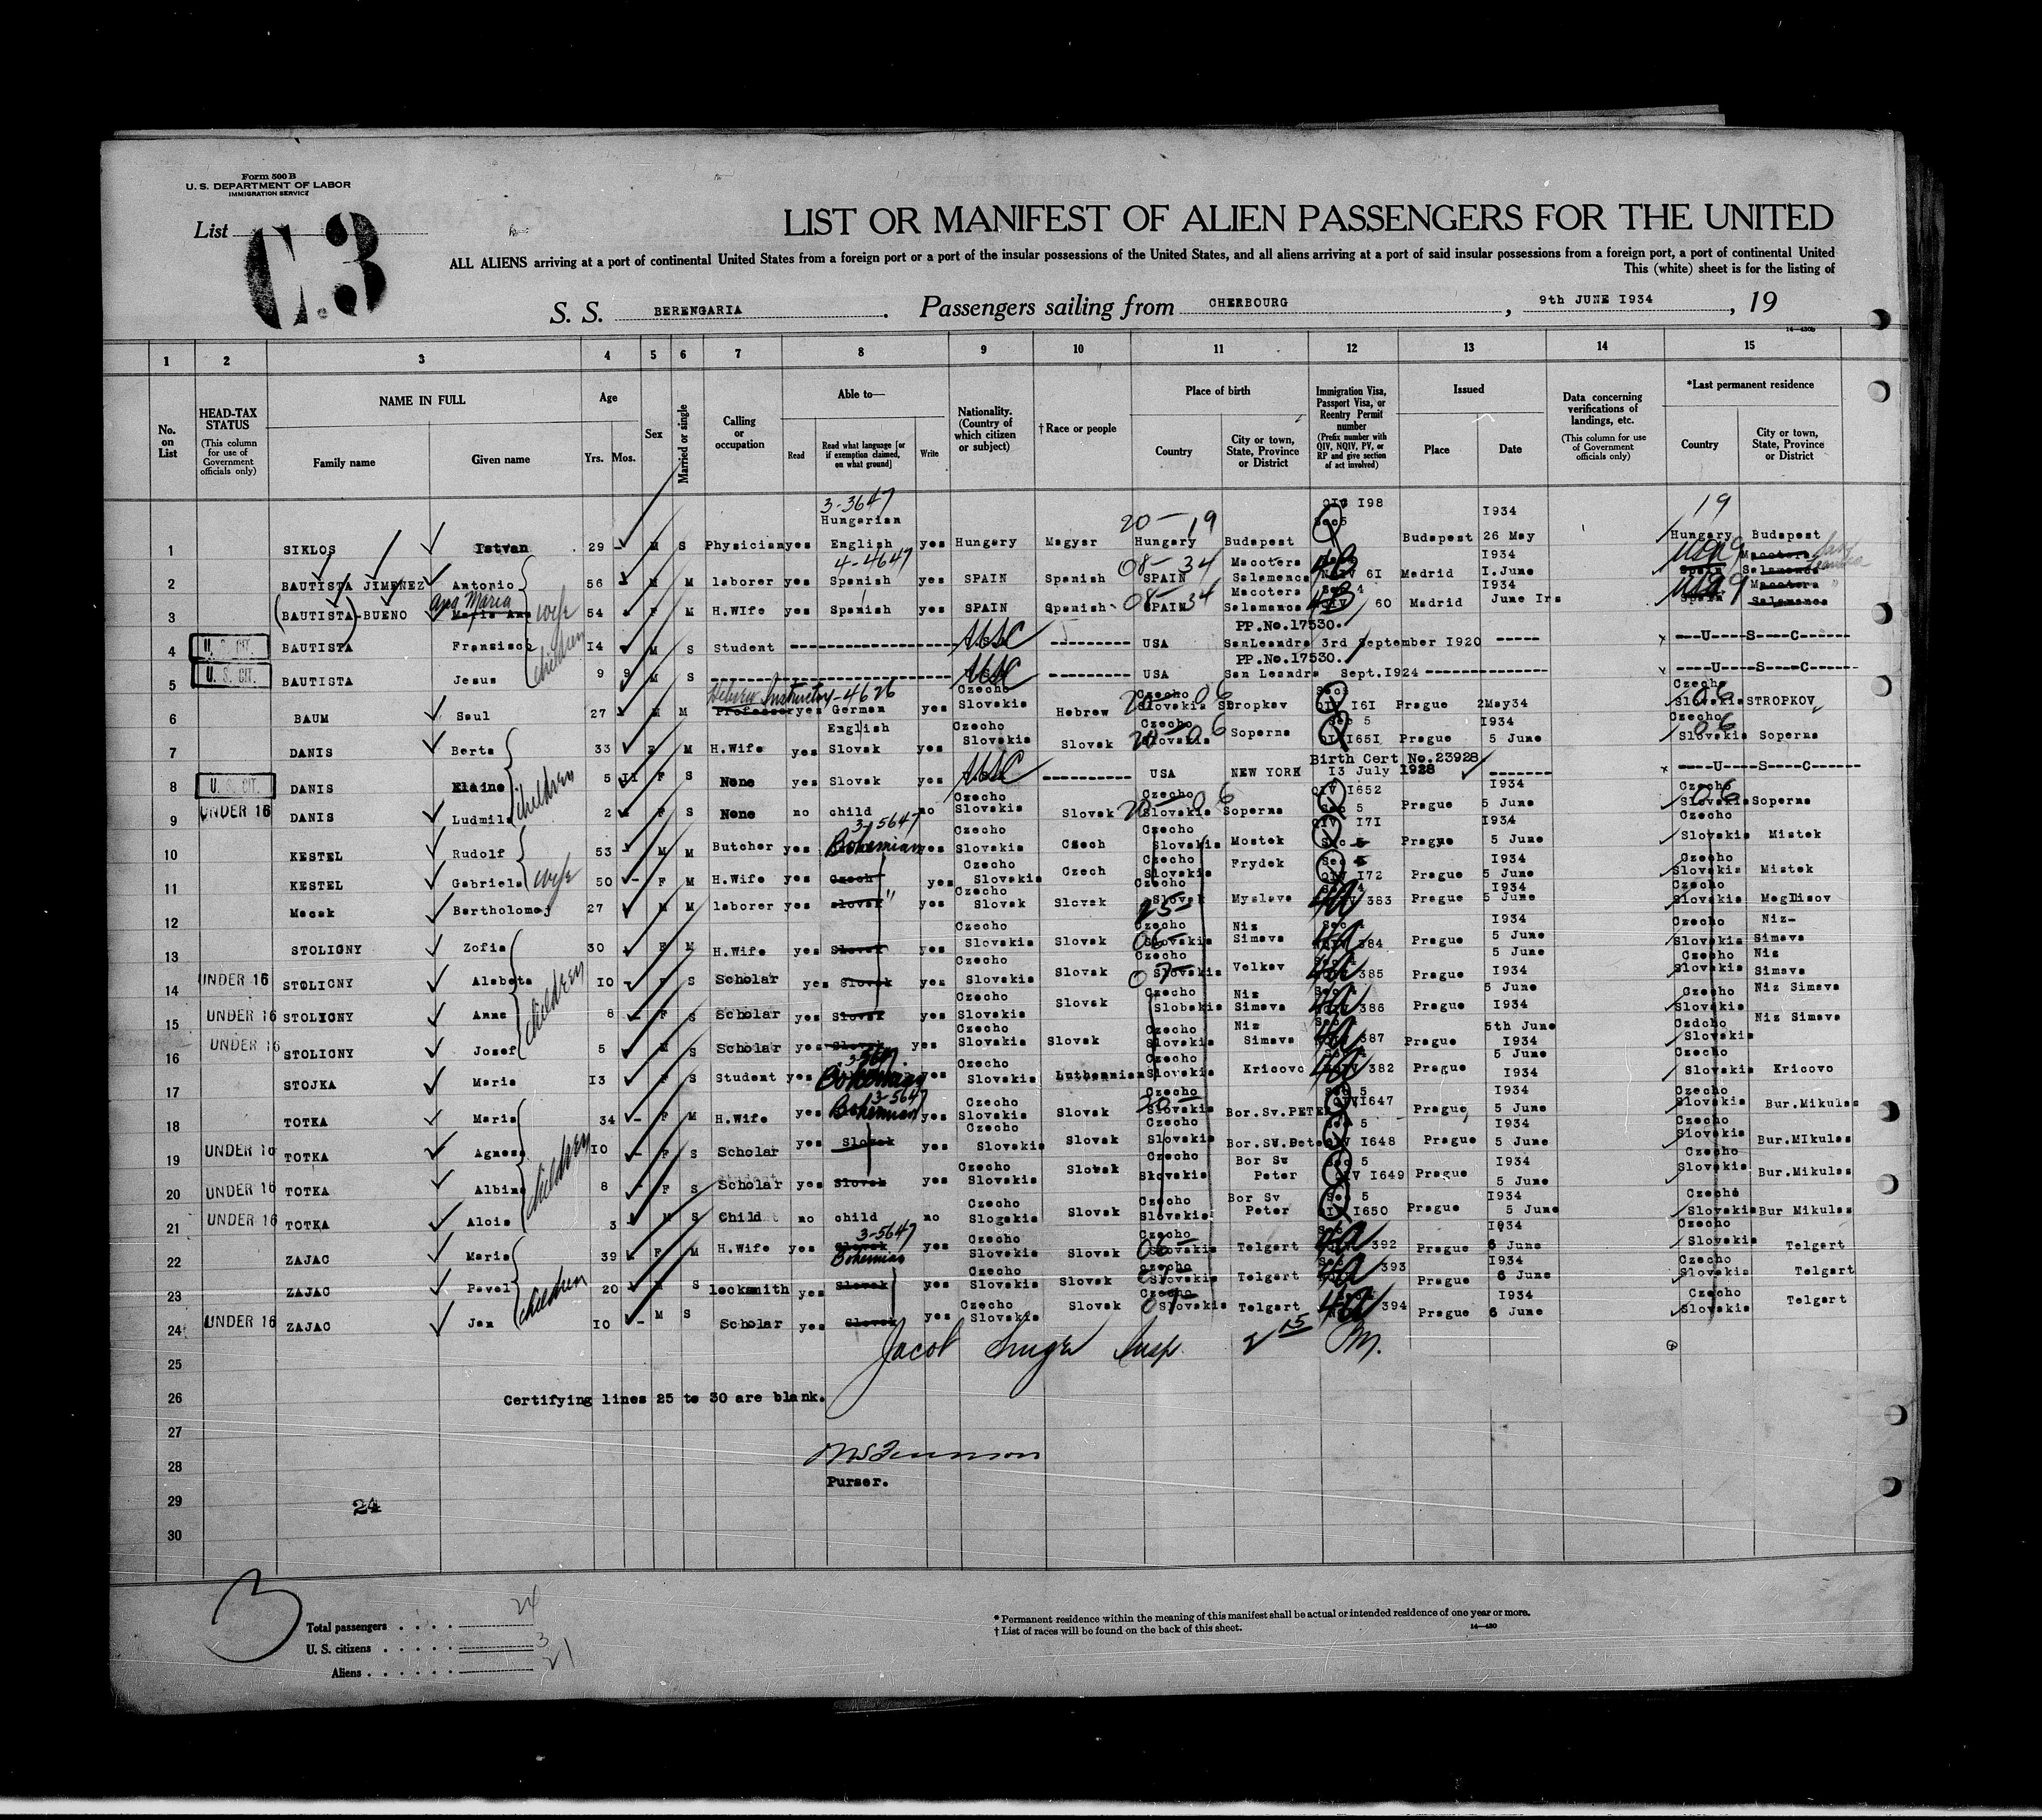 Form 500 B
U. S. DEPARTMENT OF LABOR
IMMIGRATION SERVICE
List C.3
LIST OR MANIFEST OF ALIEN PASSENGERS FOR THE UNITED
ALL ALIENS arriving at a port of continental United States from a foreign port or a port of the insular possessions of the United States, and all aliens arriving at a port of said insular possessions from a foreign port, a port of continental United
This (white) sheet is for the listing of
S. S. BERENGARIA. Passengers sailing from CHERBOURG, 9th JUNE I934, 19
14—430b
1 2 3 4 5 6 7 8 9 10 11 12 13 14 15
No. on List
HEAD-TAX STATUS (This column for use of Government officials only)
NAME IN FULL Family name Given name
Age Yrs. Mos.
Sex
Married or single
Calling or occupation
Able to— Read Read what language [or if exemption claimed, on what ground] Write
Nationality. (Country of which citizen or subject)
† Race or people
Place of birth Country City or town, State, Province or District
Immigration Visa, Passport Visa, or Reentry Permit number (Prefix number with QIV, NQIV, PV, or RP and give section of act involved)
Issued Place Date
Data concerning verifications of landings, etc. (This column for use of Government officials only)
*Last permanent residence Country City or town, State, Province or District
3-3647 20- 19 19
1 SIKLOS Istvan 29 M S Physician yes Hungarian English yes Hungary Magyar Hungary Budapest QIV I98 Sec 5 Budapest 26 May I934 Hungary Budapest
4-4647 08- 34
2 BAUTISTA JIMENEZ Antonio 56 M M laborer yes Spanish yes SPAIN Spanish SPAIN Macotera Salamanca 6I Madrid I.June I934 USA Spain Macotera Salamanca
3 (BAUTISTA)-BUENO Ana Maria Maria Ana wife 54 F M H.WIfe yes Spanish yes SPAIN Spanish 08- 34 SPAIN Macotera Salamanca 60 Madrid June Irs I934 USA Spain Macotera Salamanca
4 U. S. CIT. BAUTISTA Fransisco children I4 M S Student USC USA SanLeandra PP.No.17530. 3rd September I920 ----U----S----C------
5 U. S. CIT. BAUTISTA Jesus 9 9 M S USC USA San Leandra PP.No.17530. Sept.I924 ----U----S----C------
6 BAUM Saul 27 M M Hebrew Instructor Professor yes 4626 German English yes Czecho Slovakia Hebrew Czecho Slovakia 06 Stropkov QIV I6I Prague 2May34 Czecho Slovakia 06 STROPKOV
7 DANIS Berta 33 F M H.Wife yes Slovak yes Czecho Slovakia Slovak Czecho Slovakia 06 Soperna Sec 5 QIV I65I Prague 5 June I934 Czecho Slovakia 06 Soperna
8 U. S. CIT. DANIS Elaine children 5 II F S None yes Slovak yes USC USA NEW YORK Birth Cert No.23928 I3 July 1928 ----U----S----C------
9 UNDER 16 DANIS Ludmila 2 F S None no child no Czecho Slovakia Slovak Czecho Slovakia 06 Soperna QIV I652 Sec 5 Prague 5 June I934 Czecho Slovakia 06 Soperna
3-5647
10 KESTEL Rudolf 53 M M Butcher yes Bohemian yes Czecho Slovakia Czech Czecho Slovakia Mostek QIV I7I Sec 5 Prague 5 June I934 Czecho Slovakia Mistek
11 KESTEL Gabriela wife 50 F M H.Wife yes Czech yes Czecho Slovakia Czech Czecho Slovakia Frydek Sec 5 QIV I72 Prague 5 June I934 Czecho Slovakia Mistek
12 Macak Bartholomej 27 M M laborer yes slovak " yes Czecho Slovak Slovak Czecho Slovak 25- Myslava 383 Prague 5 June I934 Czecho Slovakia
13 STOLIGNY Zofia 30 F M H.Wife yes Slovak yes Czecho Slovakia Slovak Czecho Slovakia 06 Niz Simava 4a 384 Prague 5 June I934 Czecho Slovakia Niz- Simava
14 UNDER 16 STOLIGNY Alabeta IO F S Scholar yes Slovak yes Czecho Slovakia Slovak Czecho Slovakia 07- Velkav 4a 385 Prague 5 June I934 Czecho Slovakia Niz Simava
15 UNDER 16 STOLIGNY Anna children 8 F S Scholar yes Slovak yes Czecho Slovakia Slovak Czecho Slobakia Niz Simava 4a 386 Prague 5 June I934 Czecho Slovakia Niz Simava
16 UNDER 16 STOLIGNY Josef 5 M S Scholar yes Slovak yes Czecho Slovakia Slovak Czecho Slovakia Niz Simava 4a 387 Prague 5th June I934 Czdcho Slovakia Niz Simava
17 STOJKA Maria I3 F S Student yes 3-5647 Bohemian yes Czecho Slovakia Luthennian Czecho Slovakia Kricovo 4a 382 Prague 5 June I934 Czecho Slovakia Kricovo
18 TOTKA Maria 34 F M H.Wife yes 3-5647 Bohemian yes Czecho Slovakia Slovak Czecho Slovakia Bor.Sv.PETER Sec 5 I647 Prague 5 June I934 Czecho Slovakia Bur.Mikulas
19 UNDER 16 TOTKA Agnesa IO F S Scholar yes Slovak yes Czecho Slovakia Slovak Czecho Slovakia Bor.SV.Pete Sec 5 I648 Prague 5 June I934 Czecho Slovakia Bur.MIkulas
20 UNDER 16 TOTKA Albina children 8 F S Scholar yes Slovak yes Czecho Slovakia Slovak Czecho Slovakia Bor Sv Peter Sec 5 QIV I649 Prague 5 June I934 Czecho Slovakia Bur.Mikulas
21 UNDER 16 TOTKA Alois 3 M S Child no child no Czecho Slogakia Slovak Czecho Slovakia Bor Sv Peter Sec 5 QIV I650 Prague 5 June I934 Czecho Slovakia Bur Mikulas
22 ZAJAC Maria 39 F M H.Wife yes 3-5647 Slovak Bohemian yes Czecho Slovakia Slovak Czecho Slovakia 06- Telgart 4a 392 Prague 6 June I934 Czecho Slovakia Telgart
23 ZAJAC Pavel children 20 M S locksmith yes Slovak yes Czecho Slovakia Slovak Czecho Slovakia 07- Telgart 4a 393 Prague 6 June I934 Czecho Slovakia Telgart
24 UNDER 16 ZAJAC Jan IO M S Scholar yes Slovak yes Czecho Slovakia Slovak Czecho Slovakia 07- Telgart 4a 394 Prague 6 June I934 Czecho Slovakia Telgart
25 Jacob Insp. 2 15 PM.
26 Certifying lines 25 to 30 are blank.
27
28 Purser.
29 24
30
3
Total passengers 24
U. S. citizens 3
Aliens 21
* Permanent residence within the meaning of this manifest shall be actual or intended residence of one year or more.
† List of races will be found on the back of this sheet.
14—430